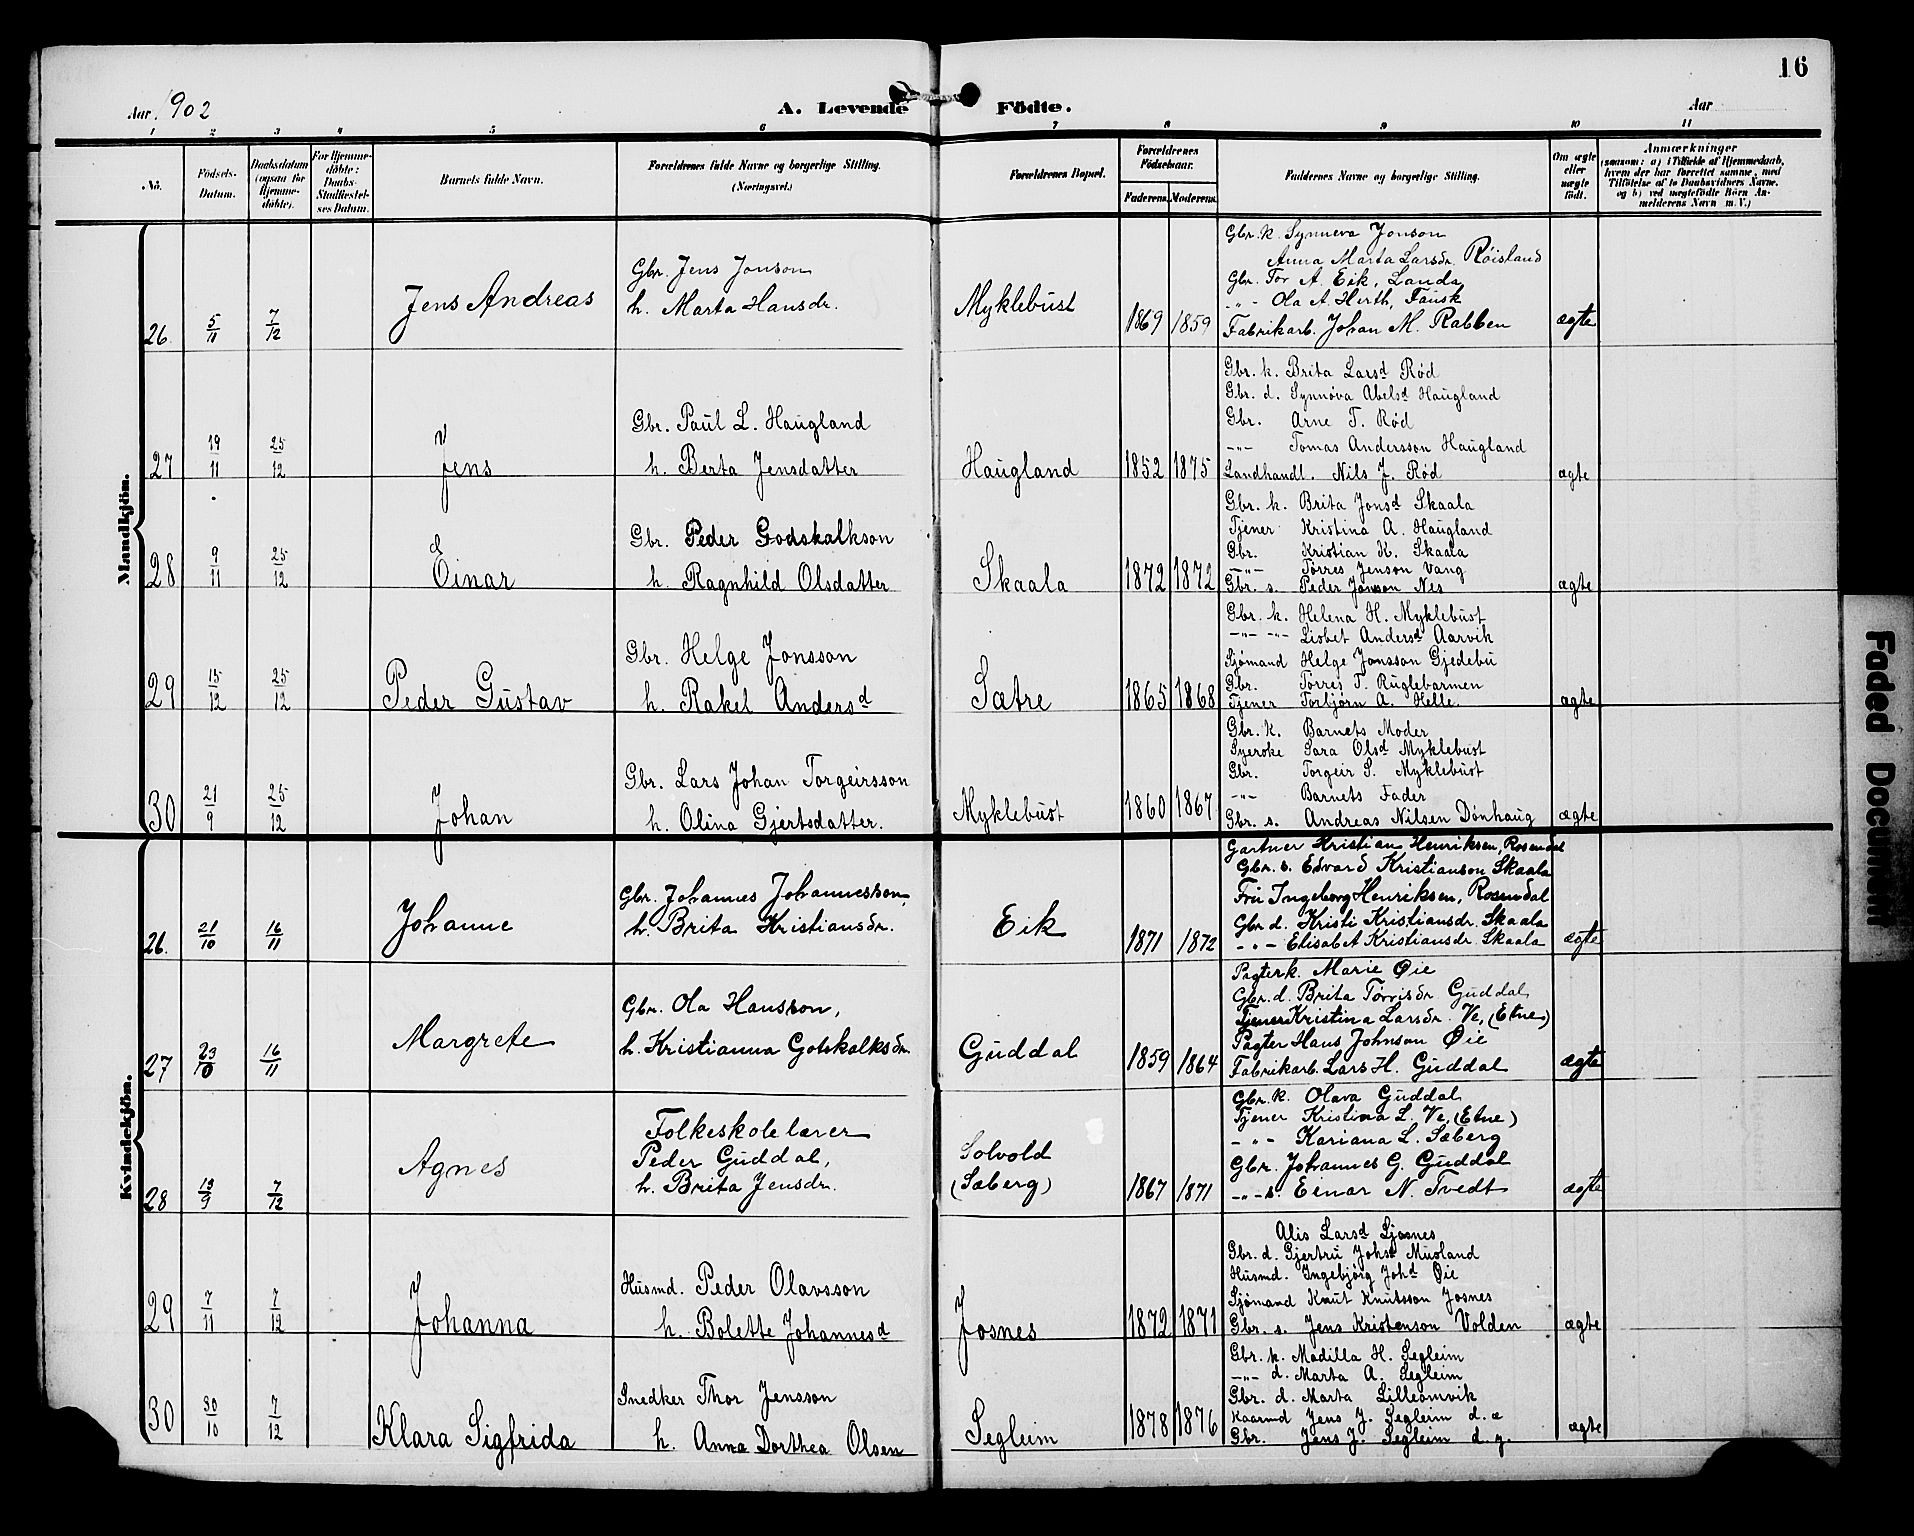 16
Aar 1902 A. Levende Födte. Aar
1 2 3 4 5 6 7 8 9 10 11
No. Födsels-Datum. Daabsdatum (ogsaa for Hjemme-döbte). For Hjemme-döbte: Daabs-Stadfæstel-ses Datum. Barnets fulde Navn. Forældrenes fulde Navne og borgerlige Stilling. (Næringsvei.) Forældrenes Bopæl. Forældrenes Födselsaar. Faderens. Moderens. Faddernes Navne og borgerlige Stilling. Om ægte eller uægte födt. Anmærkninger (saasom: a) i Tilfælde af Hjemmedaab, hvem der har forrettet samme, med Tilföielse af to Daabsvidners Navne, og b) ved uægtefödte Börn An-melderens Navn m. V.)
Mandkjön.
26. 5/11 7/12 Jens Andreas
Gbr. Jens Jonson
h. Marta Hansdr.
Myklebust 1869 1859
Gbr. k. Synneva Jonson
Anna Marta Larsdr. Røisland
Gbr. Tor A. Eik, Landa
-"- Ola A. Herth, Fausk
Fabrikarb. Johan M. Rabben
ægte
27 19/11 25/12 Jens
Gbr. Paul L. Haugland
h. Berta Jensdatter
Haugland 1852 1875
Gbr. k. Brita Larsd Rød
Gbr. d. Synnøva Abelsd Haugland
Gbr. Arne T. Rød
-"- Tomas Andersson Haugland
Landhandl. Nils J. Rød
ægte
28 9/11 25/12 Einar
Gbr. Peder Godskalkson
h. Ragnhild Olsdatter
Skaala 1872 1872
Gbr. k. Brita Jonsd Skaala
Tjener Kristina A. Haugland
Gbr. Kristian K. Skaala
-"- Torres Jenson Vang
Gbr. s. Peder Jonson Nes
ægte
29 15/12 25/12 Peder Gustav
Gbr. Helge Jonsson
h. Rakel Andersd
Sætre 1865 1868
Gbr. k. Helena H. Myklebust
-"- -"- Lisbet Andersd Aarvik
Sjømand Helge Jonsson Gjedebu
Gbr. Torres T. Ruglebarmen
Tjener Torbjørn A. Helle.
ægte
30 21/9 25/12 Johan
Gbr. Lars Johan Torgeirsson
h. Olina Gjertsdatter.
Myklebust 1860 1867
Gbr. k. Barnets Moder
Syerske Sara Olsd Myklebust
Gbr. Torgeir S. Myklebust
-"- Barnets Fader
Gbr. s. Andreas Nilsen Dønhaug
ægte
Kvindekjön.
26. 21/10 16/11 Johanne
Gbr. Johannes Johannesson,
h. Brita Kristiansdr.
Eik 1871 1872
Gartner Kristian Henriksen, Rosendal
Gbr. s. Edvard Kristianson Skaala
Fru Ingeborg Henriksen, Rosendal
Gbr. d. Kristi Kristiansdr. Skaala
-"- Elisabet Kristiansdr. Skaala
ægte
27 23/10 16/11 Margrete
Gbr. Ola Hansson,
h. Kristianna Gotskalksdr.
Guddal 1859 1864
Pagterk. Marie Øie
Gbr. d. Brita Tørrisdr Guddal
Tjener Kristina Larsdr. Ve, (Etne)
Pagter Hans Johnson Øie
Fabrikarb. Lars H. Guddal
ægte
28 13/9 7/12 Agnes
Folkeskolelærer
Peder Guddal,
h. Brita Jensdr.
Solvold
(Sæberg) 1867 1871
Gbr. k. Olava Guddal
Tjener Kristina L. Ve, (Etne)
-"- Kariana L. Sæberg
Gbr. Johannes G. Guddal
-"- s. Einar N. Tvedt
ægte
29 7/11 7/12 Johanna
Husmd. Peder Olavsson
h. Bolette Johannesd
Josnes 1872 1871
Alis Larsd Sjosnes
Gbr. d. Gjertru Johsd Musland
Husmd. Ingebjörg Johd Øie
Sjömand Knut Knutsson Josnes
Gbr. s. Jens Kristenson Volden
ægte
30 30/10 7/12 Klara Sigfrida
Snedker Thor Jensson
h. Anna Dorthea Olsen
Segleim 1878 1876
Gbr. k. Madilla H. Segleim
-"- d. Marta A. Segleim
Gbr. d. Marta Lilleomvik
Kaarmd Jens J. Segleim d. æ
Gbr. Jens J. Segleim d. y.
ægte
Faded Document